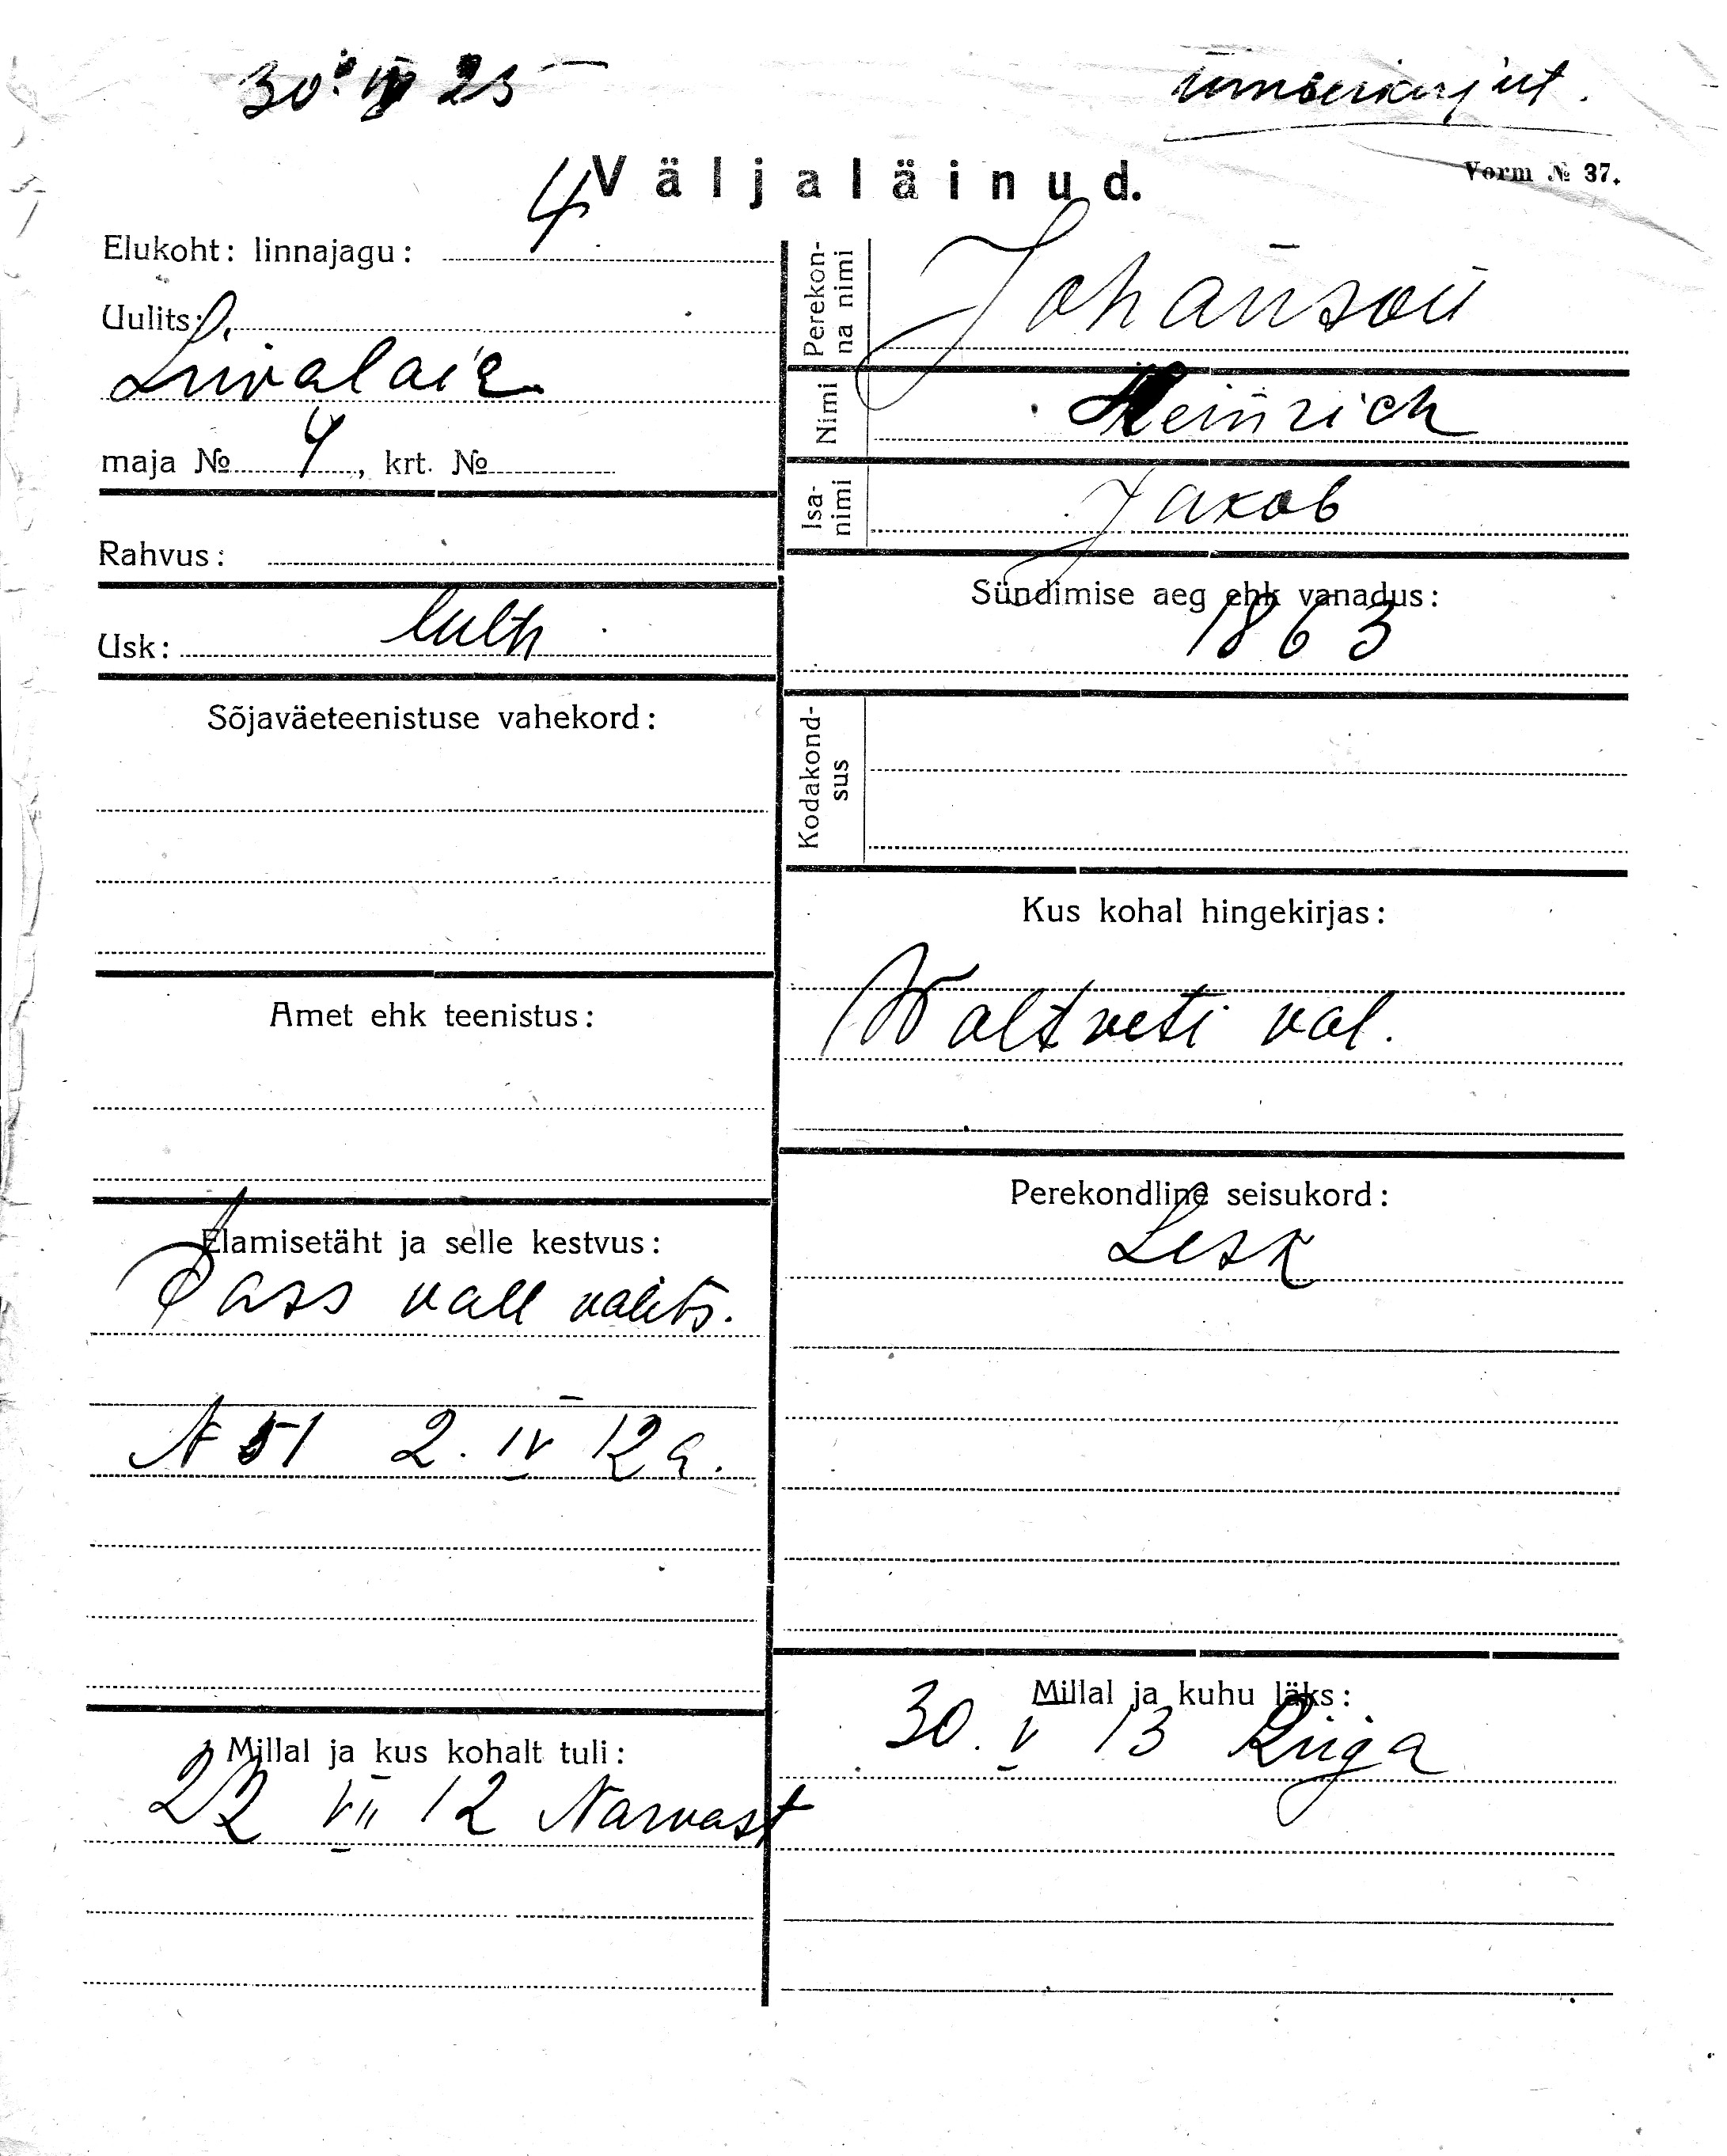 30. 25
ümberkirjut.
Väljaläinud.
Vorm № 37.
Elukoht: linnajagu: 4
Uulits:
Liivalaia
maja № 4, krt. №
Rahvus:
Usk: luth
Sõjaväeteenistuse vahekord:
Amet ehk teenistus:
Elamisetäht ja selle kestvus:
Pass vall valits.
N 51 2. IV 12 a.
Millal ja kus kohalt tuli:
22 VII 12 Narvast
Perekonna nimi Johanson
Nimi Heinrich
Isanimi Jakob
Sündimise aeg ehk vanadus:
1863
Kodakondsus
Kus kohal hingekirjas:
Waltveti val.
Perekondline seisukord:
Lesk
Millal ja kuhu läks:
30. V 13 Riiga